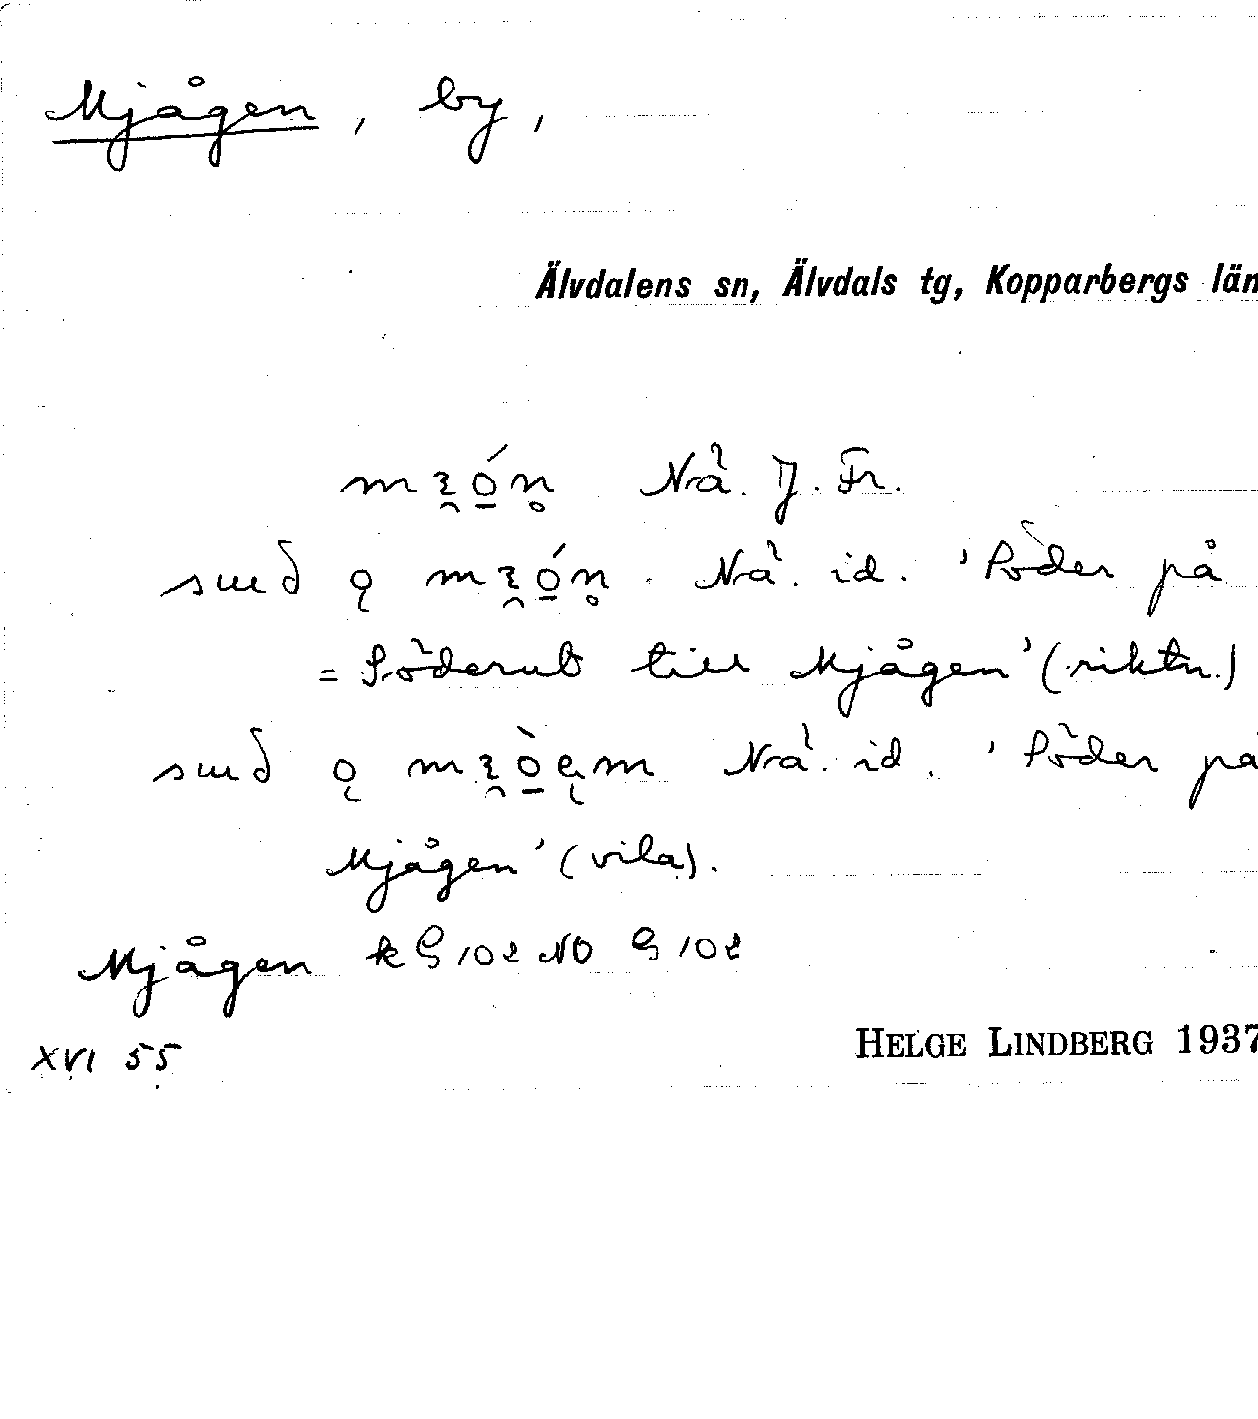 Mjågen, by,
Älvdalens sn, Älvdals tg, Kopparbergs län
Nrå. J. Fr.
Nrå. id. 'Söder på
= Söderut till Mjågen' (riktn.)
Nrå. id. 'Söder på
Mjågen' (vila).
Mjågen k G 102 NO G 102
XVI 55
HELGE LINDBERG 1937